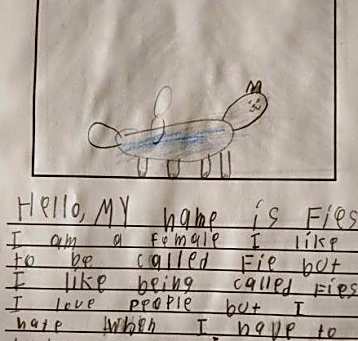 Hello, MY name is Fies
I am a Female I like
to be called Fie but
I like being called Fies
I love people but I
hate when I have to